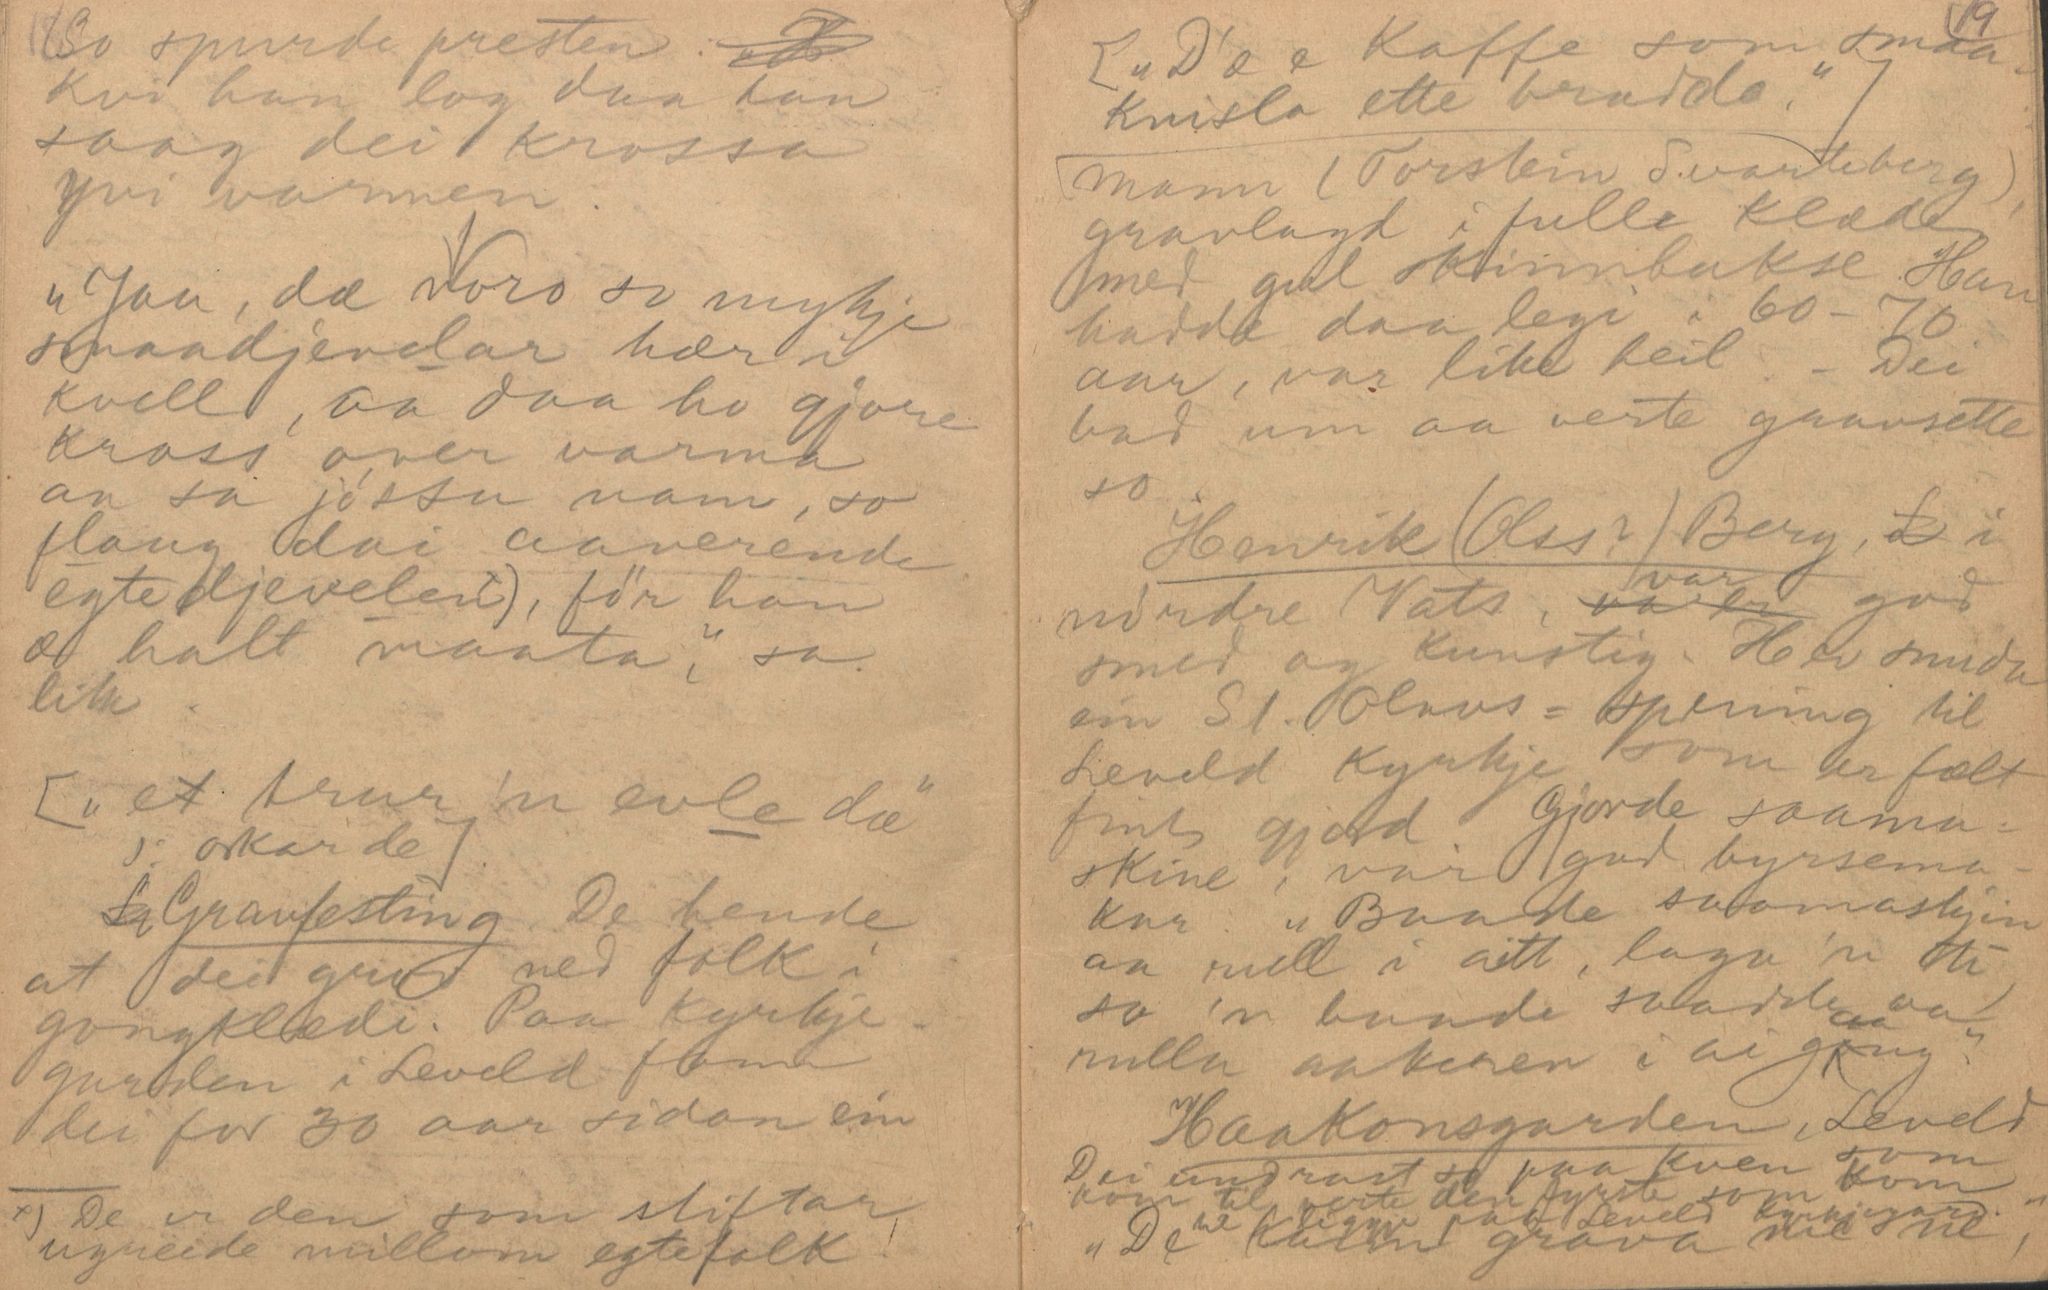 18
So spurde presten.
Kvi han log daa han
saag dei krossa
yvi varmen.
"Jaa, dæ voro so mykje
smaadjevelar hær i
kvell, aa daa ho gjore
kross over varma
aa sa jössu namn, so
flaug dai aaverende
egtedjevelen x), för han
æ halt maata," sa
lik.
["et trur 'n evle dæ"
ɔ: orkar de].
Gravfesting. De hende,
at dei grov ned folk i
gongklædi. Paa kyrkje-
garden i Leveld fann
dei for 30 aar sidan ein
x) De er den som stiftar
ugreide millom egtefolk!
19
["D'æ e Kaffe som smaa-
knisla ette bradde."]
mann (Torstein Svarteberg),
gravlagd i fulle klæde
med gul skinnbukse. Han
hadde daa legi i 60-70
aar, var like heil. - Dei
bad um aa verte gravsette
so.
Henrik (Olss?) Berg, i
nørdre Vats, var god
smed og kunstig. Hev smida
ein St. Olavs= spening til
Leveld kyrkje som er fælt
fint gjord. Gjorde saama-
skine, var god byrsema-
kar. "Baade saamaskjin
aa rull i aitt, laga 'n ti
so 'n baade saadde aa
rulla aakeren i ai gaang".
Haakonsgarden, Leveld
Dei undrast so paa kven som
kom til verte den fyrste som kom
til liggje paa Leveld kyrkjegard.
"De kann grava me ne,"